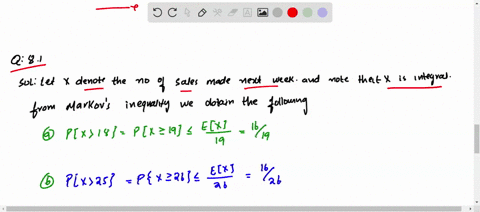 Q: 8.1
Sol: Let X denote the no of sales made next week. and note that X is integral.
from Markov's inequality we obtain the following
(a) P[X>18] = P[X ≥ 19] ≤ E[X]/19 = 16/19
(b) P[X>25] = P{X ≥ 26] ≤ E[X]/26 = 16/26